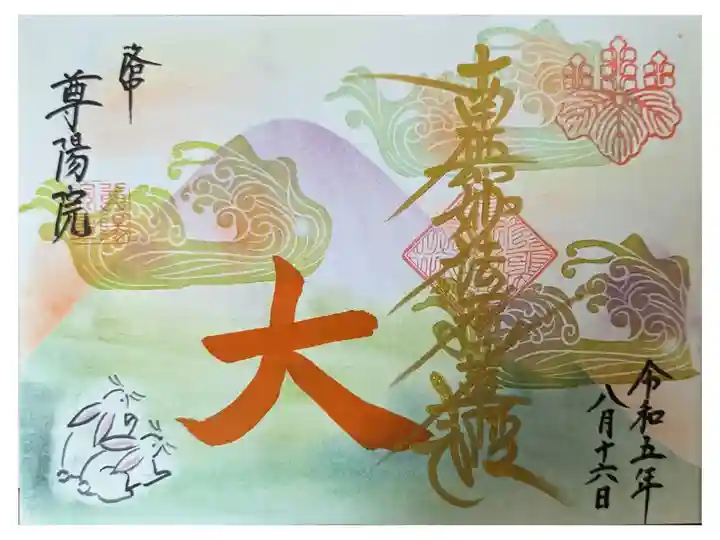 南無妙法蓮華経
大
令和五年
八月十六日
洛中
尊陽院